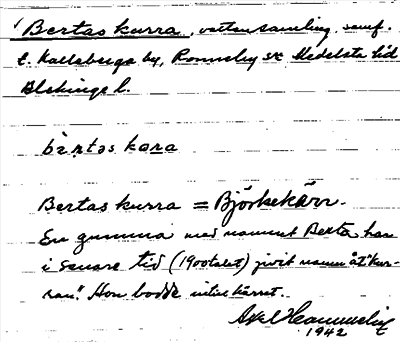 Bertas kurra, vattensamling, samf.
t. Kalleberga by, Ronneby sn Medelsta hd
Blekinge l.
bæ̀rtəs kɷra
Bertas kurra = Björkekärr.
En gumma med namnet Berta har
i senare tid (1900talet) givit namn åt "kur-
ran". Hon bodde intill kärret.
Axel
1942